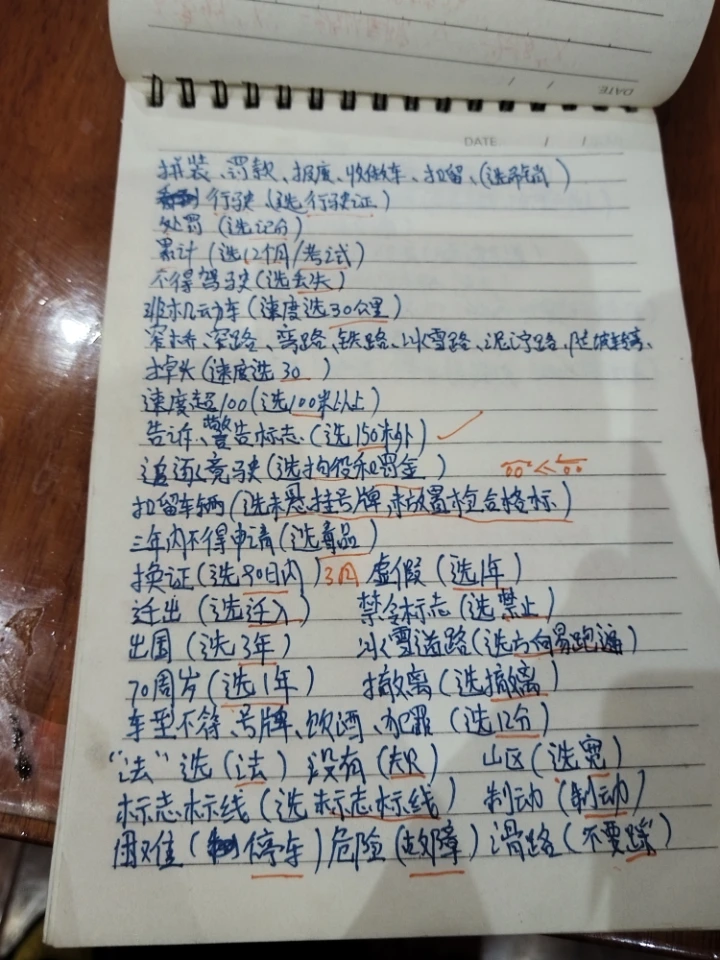 DATE
DATE / /
拼装、罚款、报废、收缴车、扣留、(选吊销)
行驶(选行驶证)
处罚(选记分)
累计(选12个月/考试)
不得驾驶(选丢失)
非机动车(速度选30公里)
窄桥、窄路、弯路、铁路、冰雪路、泥泞路、陡坡转弯、
掉头(速度选30)
速度超100(选100米以上)
告诉、警告标志(选150米外)
追逐竞驶(选拘役和罚金)
扣留车辆(选未悬挂号牌,未放置检合格标)
三年内不得申请(选毒品)
换证(选90日内) 虚假(选1年)
迁出(选迁入) 禁令标志(选禁止)
出国(选3年) 冰雪道路(选方向易跑遍)
70周岁(选1年) 撤离(选撤离)
车型不符、号牌、饮酒、犯罪(选12分)
“法”选(法) 没有(没) 山区(选宽)
标志标线(选标志标线) 制动(制动)
困难(停车) 危险(故障) 滑路(不要踩)